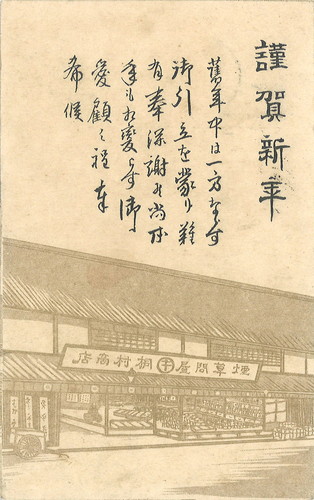 謹賀新年
舊年中は一方ならず
御引立を蒙り難
有奉深謝候尚本
年も不相變
愛顧之程奉
希候
煙草問屋 桐村商店